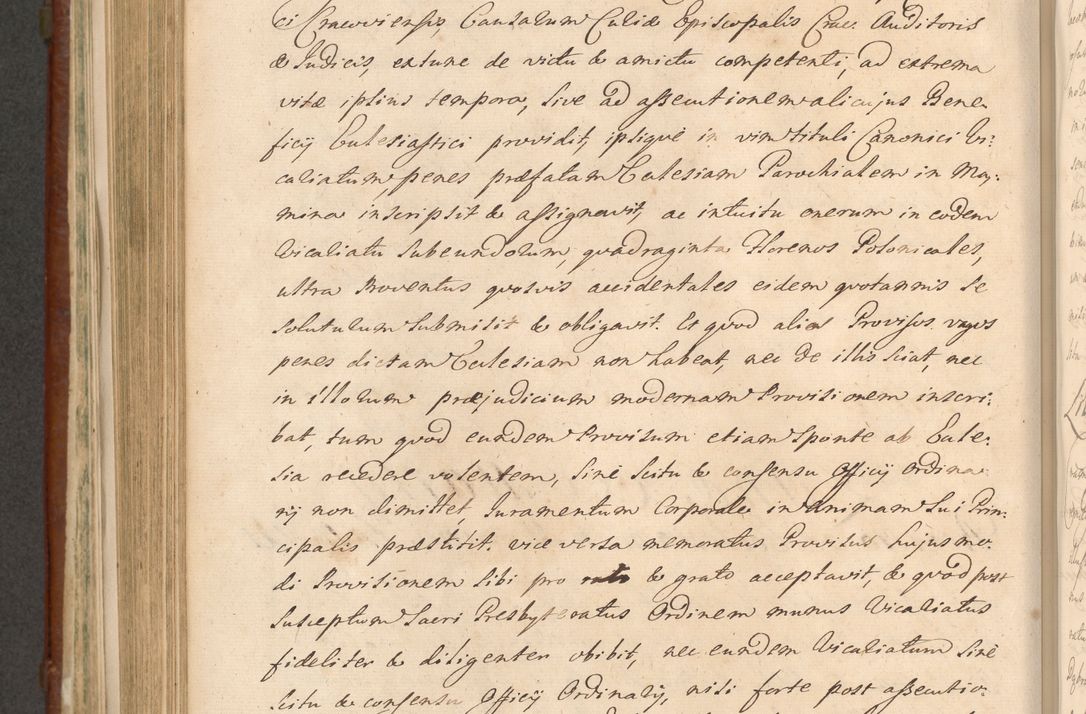 ci Cracoviensis, Causarum Curiæ Episcopalis Crac. Auditoris
& Judicis, extunc de victu & amictu competenti, ad extrema
vitæ ipsius tempora, sive ad assecutionem alicujus Bene-
ficij Ecclesiastici providit, ipsiquè in vim tituli Canonici Vi:
cariatum, penes præfatam Ecclesiam Parochialem in
mina inscripsit & assignavit, ac intuitu onerum in eodem
Vicariatu subeundorum, quadraginta Florenos Polonicales,
ultra Proventus quosvis accidentales eidem quotannis se
soluturum submisit & obligavit. Et quod alios Provisos
penes dictam Ecclesiam non habeat, nec de illis sciat, nec
in illorum præjudicium modernam Provisionem inscri:
bat, tum quod eundem Provisum etiam sponte ab Eccle:
sia recedere volentem, sinè scitu & consensu Officij Ordina
rij non dimittet, Juramentum Corporale in animam sui Prin:
cipalis præstitit. vice versa memoratus Provisus hujusmo.
di Provisionem sibi pro & grato acceptavit, & quod post
susceptum Sacri Presbyteratus Ordinem munus Vicariatus
fideliter & diligenter obibit, nec eundem Vicariatum sinè
scitu & consensu Officij Ordinarij, nisi forte post assecutio: